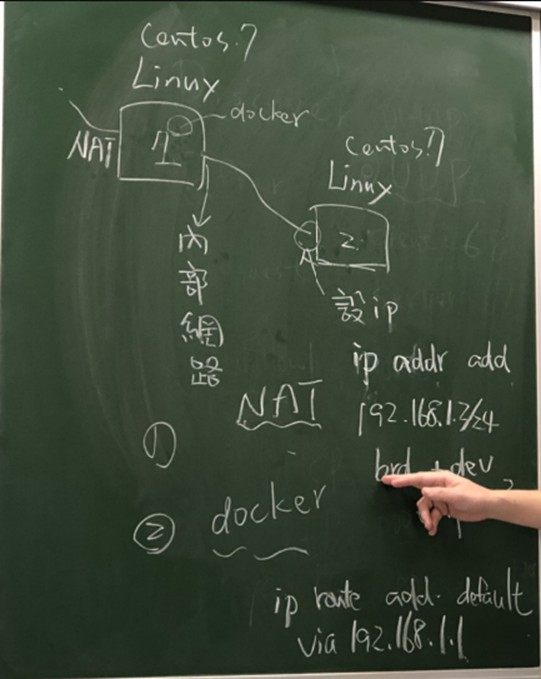 Centos.7
Linux
docker
NAT
1
Centos.7
Linux
2.
A
內部網路
設ip
ip addr add
192.168.1.2/24
brd + dev
① NAT
② docker
ip route add default
via 192.168.1.1